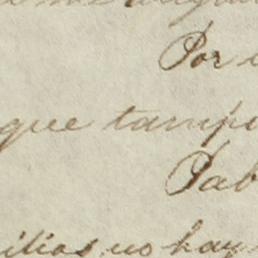 Por
que tampo
Pab
ilias no hay